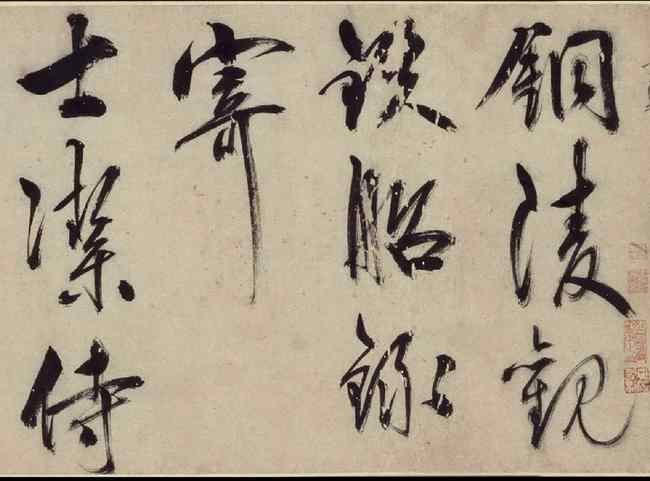 銅陵觀
鐵船錄
寄
士潔侍